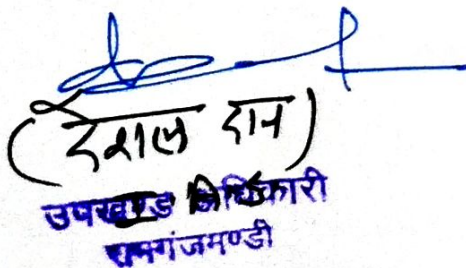 (देशल दान)
उपखण्ड अधिकारी
रामगंजमण्डी